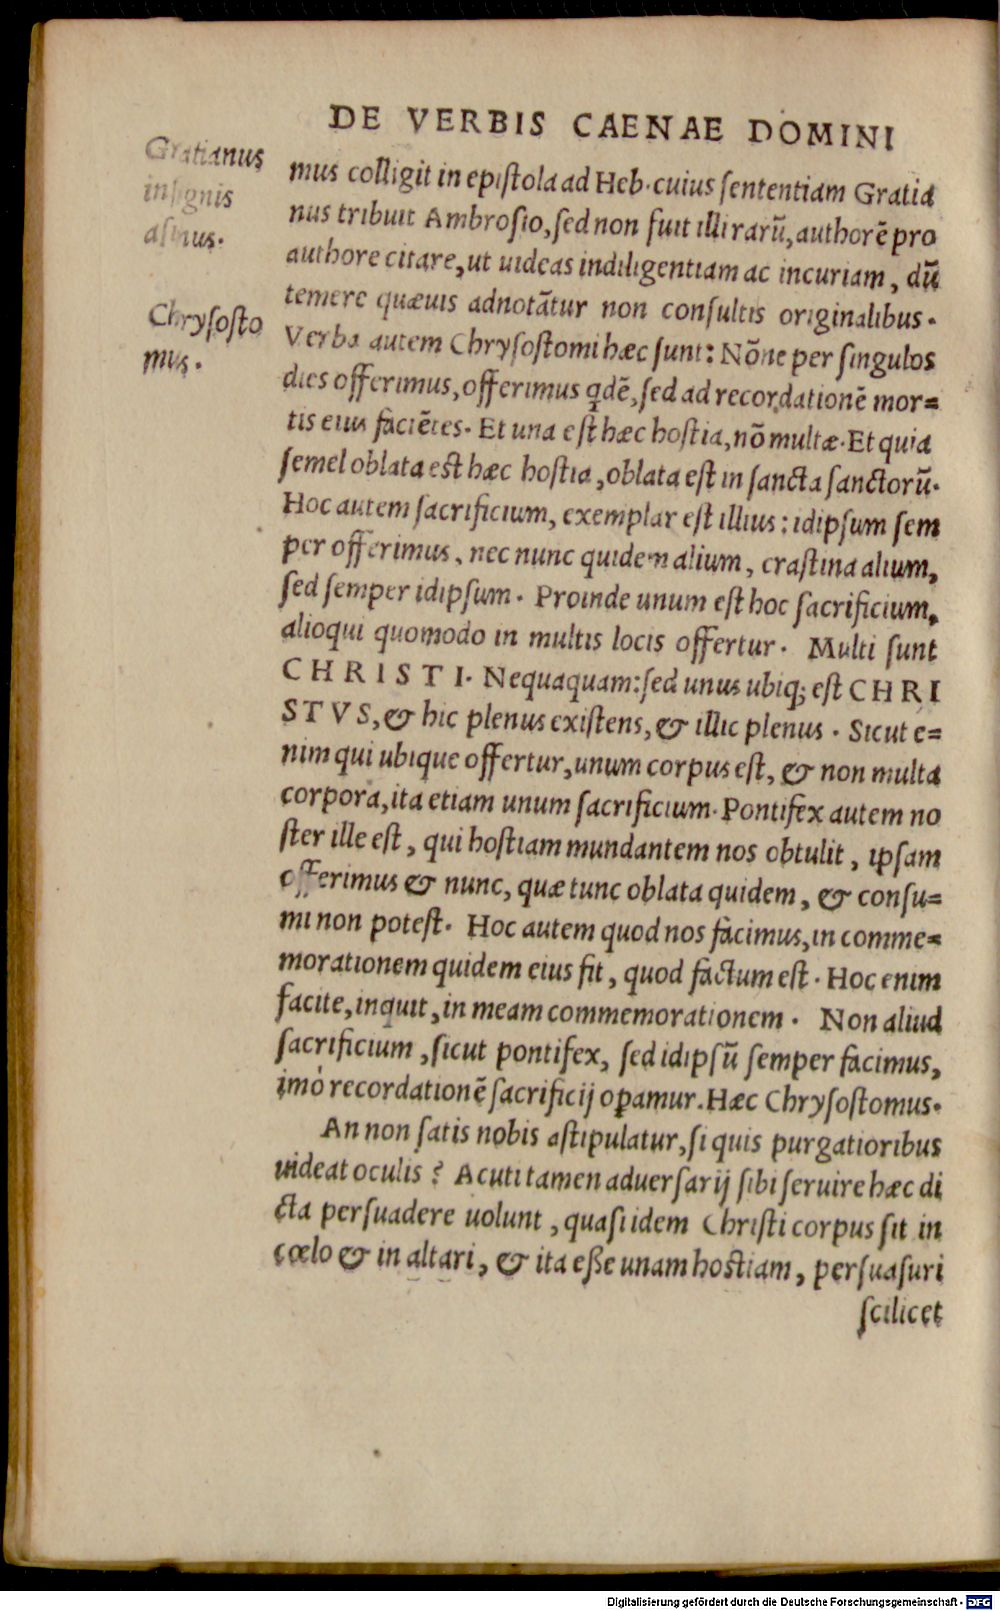 DE VERBIS CAENAE DOMINI
Gratianus
insignis
asinus.
Chrysosto
mus.
mus colligit in epiſtola ad Heb. cuius ſententiam Gratia
nus tribuit Ambroſio, ſed non fuit illi rarū, authorē pro
authore citare, ut uideas indiligentiam ac incuriam, dū
temere quæuis adnotātur non conſultis originalibus.
Verba autem Chryſoſtomi hæc ſunt: Nōne per ſingulos
dies offerimus, offerimus q̄dē, ſed ad recordationē mor=
tis eius faciētes. Et una eſt hæc hoſtia, nō multæ. Et quia
ſemel oblata eſt hæc hoſtia, oblata eſt in ſancta ſanctorū.
Hoc autem ſacrificium, exemplar eſt illius: idipſum ſem
per offerimus, nec nunc quidem alium, craſtina alium,
ſed ſemper idipſum. Proinde unum eſt hoc ſacrificium,
alioqui quomodo in multis locis offertur. Multi ſunt
CHRISTI. Nequaquam: ſed unus ubiq; eſt CHRI
STVS, & hic plenus exiſtens, & illic plenus. Sicut e=
nim qui ubique offertur, unum corpus eſt, & non multa
corpora, ita etiam unum ſacrificium. Pontifex autem no
ſter ille eſt, qui hoſtiam mundantem nos obtulit, ipſam
offerimus & nunc, quæ tunc oblata quidem, & conſu=
mi non poteſt. Hoc autem quod nos facimus, in comme=
morationem quidem eius fit, quod factum eſt. Hoc enim
facite, inquit, in meam commemorationem. Non aliud
ſacrificium, ſicut pontifex, ſed idipſū ſemper facimus,
imò recordationē ſacrificij oꝑamur. Hæc Chryſoſtomus.
An non ſatis nobis aſtipulatur, ſi quis purgatioribus
uideat oculis? Acuti tamen aduerſarij ſibi ſeruire hæc di
cta perſuadere uolunt, quaſi idem Chriſti corpus ſit in
cœlo & in altari, & ita eſſe unam hoſtiam, perſuaſuri
ſcilicet
Digitalisierung gefördert durch die Deutsche Forschungsgemeinschaft - DFG